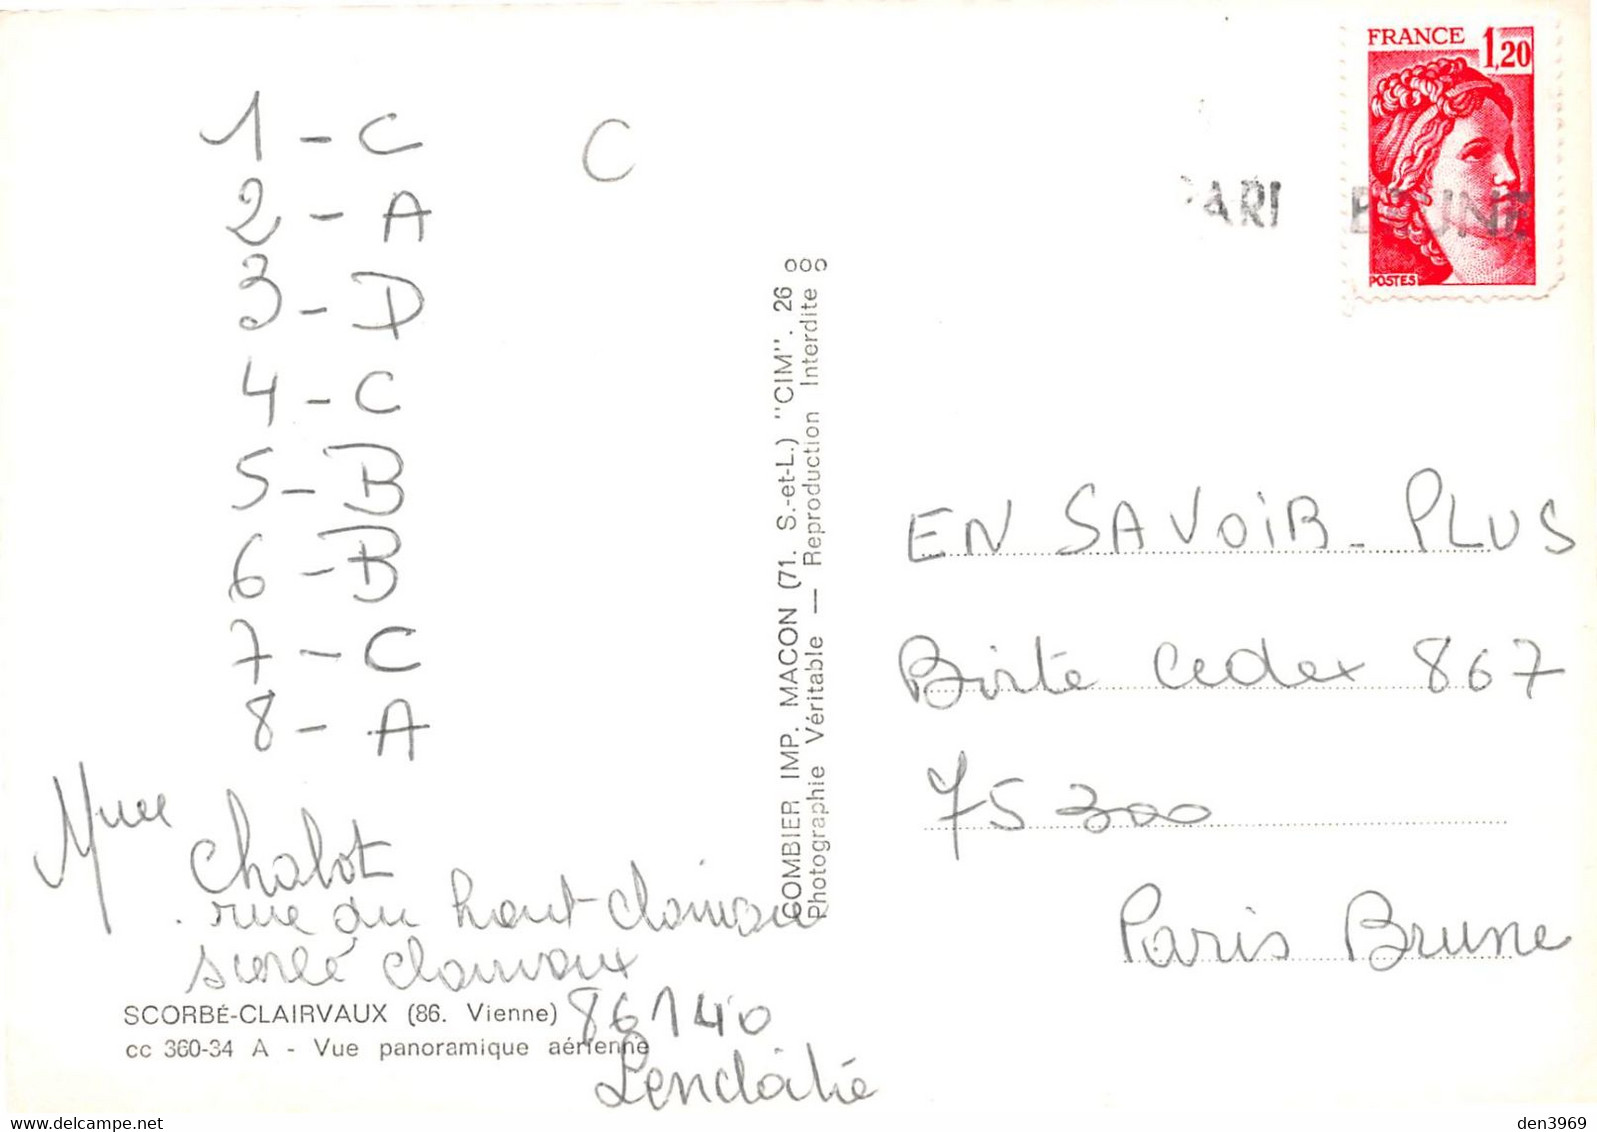 1 - C
C
2 - A
3 - D
4 - C
5 - B
6 - B
7 - C
8 - A
Mme
Chabot
rue du haut clairvaux
scorbé clairvaux
86140
Lencloître
SCORBÉ-CLAIRVAUX (86. Vienne)
cc 360-34 A - Vue panoramique aérienne
COMBIER IMP. MACON (71. S.-et-L.) "CIM". 26
Photographie Véritable — Reproduction Interdite
FRANCE 1,20
POSTES
PARI BRUNE
EN SAVOIR-PLUS
Boite Cedex 867
75300
Paris Brune
den3969